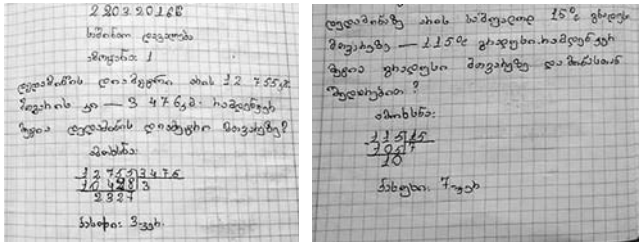 საშინაო დავალება
ამოცანა: 1
დედამიწის დიამეტრი არის 12 755კმ.
მთვარის კი — 3 476კმ. რამდენჯერ
მეტია დედამიწის დიამეტრი მთვარეზე?
ამოხსნა:
12755 3476
10428 3
2327
პასუხი: 3-ჯერ.
დედამიწაზე არის საშუალოდ 15°c გრადუსი
მთვარეზე — 115°c გრადუსი. რამდენჯერ
მეტია გრადუსი მთვარეზე დედამიწასთან
შედარებით?
ამოხსნა:
115 15
105 7
10
პასუხი: 7-ჯერ